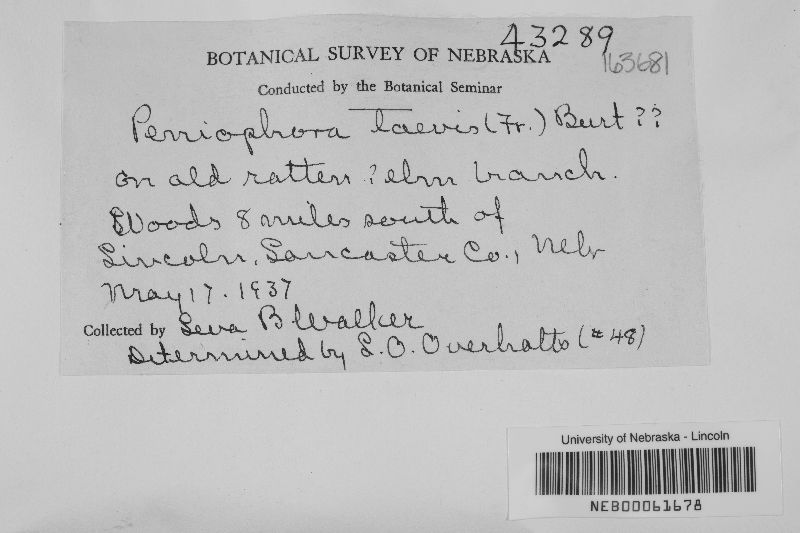 43289
BOTANICAL SURVEY OF NEBRASKA
163681
Conducted by the Botanical Seminar
Peniophora laevis (Fr.) Burt ??
on old rotten ? elm branch.
Woods 8 miles south of
Lincoln, Lancaster Co., Nebr
May 17. 1937
Collected by Leva B Walker
Determined by L. O. Overholts (#48)
University of Nebraska - Lincoln
NEB00061678